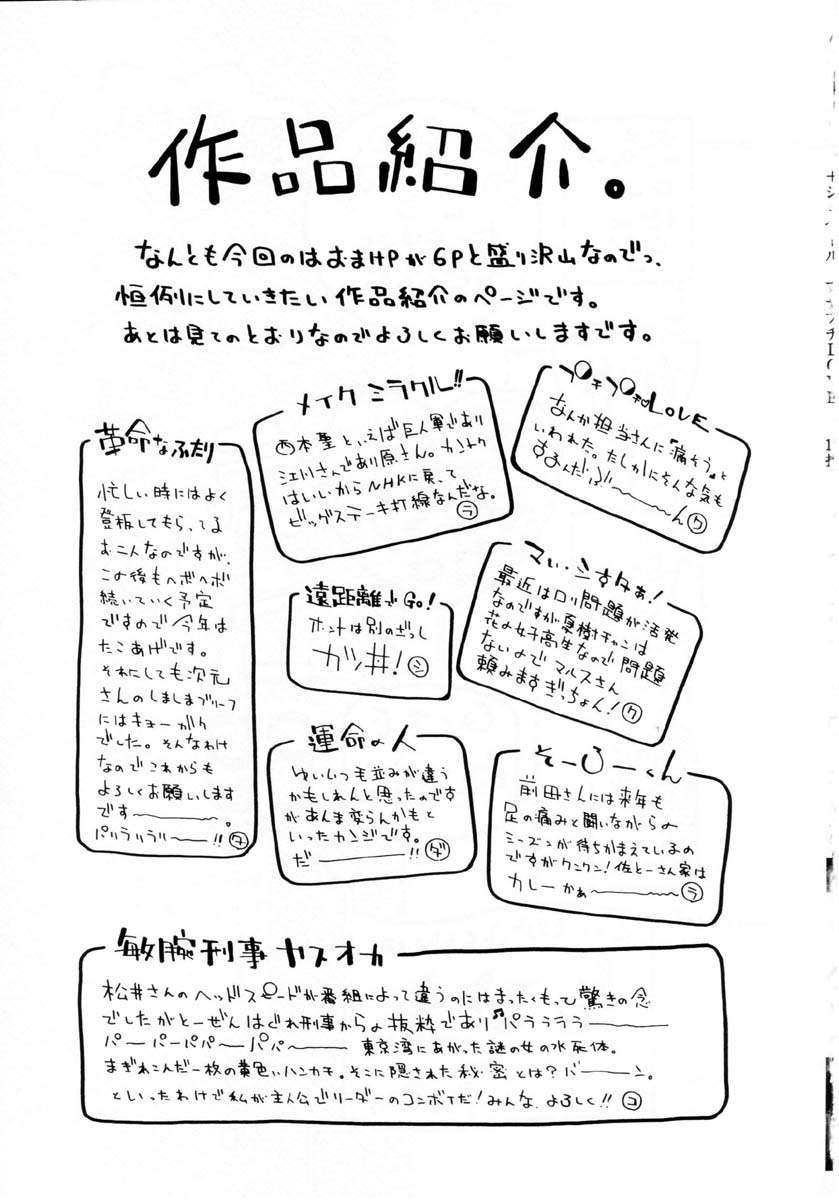 作品紹介。
なんとも今回のはおまけPが6Pと盛り沢山なのでっ、
恒例にしていきたい作品紹介のページです。
あとは見てのとおりなのでよろしくお願いしますです。
プチプチLOVE
なんか担当さんに「痛そう」と
いわれた。たしかにそんな気も
するんだぶ〜〜〜ん ク
メイクミラクル!!
西本聖といえば巨人軍であり
江川さんであり原さん。カントク
はいいからNHKに戻って
ビッグステーキ打線なんだな。 ラ
革命なふたり
忙しい時にはよく
登板してもらってる
お二人なのですが、
この後もヘボヘボ
続いていく予定
ですので今年は
たこあげです。
それにしても次元
さんのしましまブリーフ
にはキョーがく
でした。そんなわけ
なのでこれからも
よろしくお願いします
です〜〜〜。
パリラリラ〜〜〜!! タ
まい・シすタあ!
最近はロリ問題が活発
なのですが夏樹チャンは
花の女子高生なので問題
ないのでマルスさん
頼みますぎっちょん! ク
遠距離でGo!
ホントは別のざっし
ガッ井! シ
運命の人
ゆいいつ毛並みが違う
かもしれんと思ったのです
があんま変らんかもと
いったカンジです。
だ〜〜〜!! ダ
そーろーくん
前田さんには来年も
足の痛みと闘いながらの
シーズンが待ちかまえているの
ですがクンクン!佐とーさん家は
カレーかぁ〜〜〜 ラ
敏腕刑事ヤスオカ
松井さんのヘッドスピードが番組によって違うのにはまったくもって驚きの念
でしたがとーぜんはぐれ刑事からの抜粋であり♪パラララ〜〜〜
パーパーパパーパパー〜〜 東京湾にあがった謎の女の水死体。
まぎれこんだ一枚の黄色いハンカチ。そこに隠された秘密とは?バーーン。
といったわけで私が主人公でリーダーのコンボイだ!みんな、よろしく!! コ